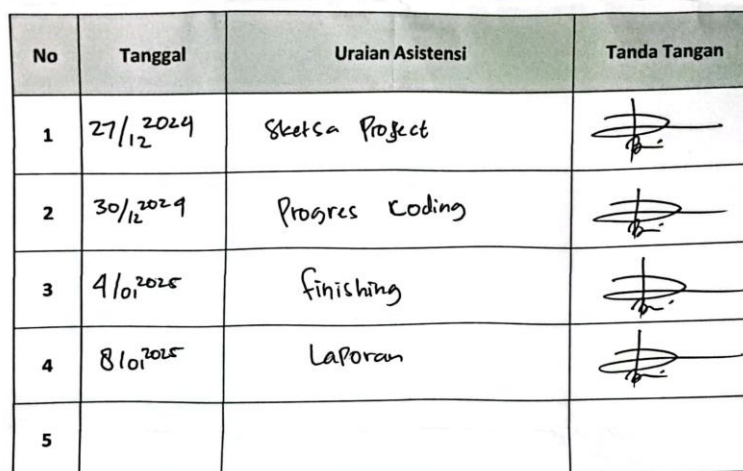 No Tanggal Uraian Asistensi Tanda Tangan
1 27/12 2024 Sketsa Project
2 30/12 2024 Progres Coding
3 4/01 2025 finishing
4 8/01 2025 Laporan
5